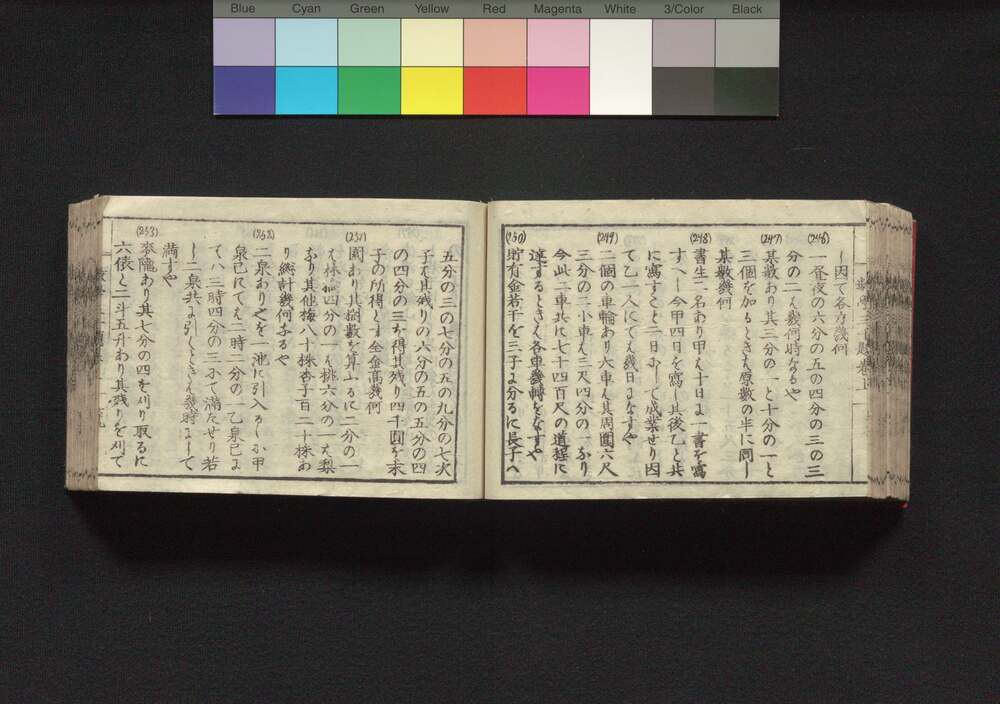 Blue Cyan Green Yellow Red Magenta White 3/Color Black
ヽ因て各力幾何
(246)
一昼夜の六分の五の四分の三の三
分の二ハ幾何時なるや
(247)
某数あり其三分の一と十分の一と
三個を加るときハ原数の半に同し
某数幾何
(248)
書生二名あり甲ハ十日ニ一書を寫
すへし今甲四日を寫し其後乙と共
に寫すこと二日にして成業せり因
て乙一人にてハ幾日になすや
(249)
二個の車輪あり大車ハ其周圍六尺
三分の二小車ハ三尺四分の一なり
今此二車共に七千四百尺の道程に
達するときハ各車幾轉をなすや
(250)
貯有金若干を三子に分るに長子へ
五分の三の七分の五の九分の七次
子ハ其残りの六分の五の五分の四
の四分の三を得其残り四千圓を末
子の所得とす全金高幾何
(251)
園あり其樹数を算ふるに二分の一
ハ林檎四分の一ハ桃六分の一ハ梨
なり其他梅八十株杏子百二十株あ
り総計幾何なるや
(252)
二泉あり之を一池に引入るゝに甲
泉已にてハ二時二分の一乙泉已に
てハ三時四分の三にて満たせり若
し二泉共に引くときハ幾時にして
満すや
(253)
麥隴あり其七分の四を刈り取るに
六俵と二斗五升あり其残りを刈て